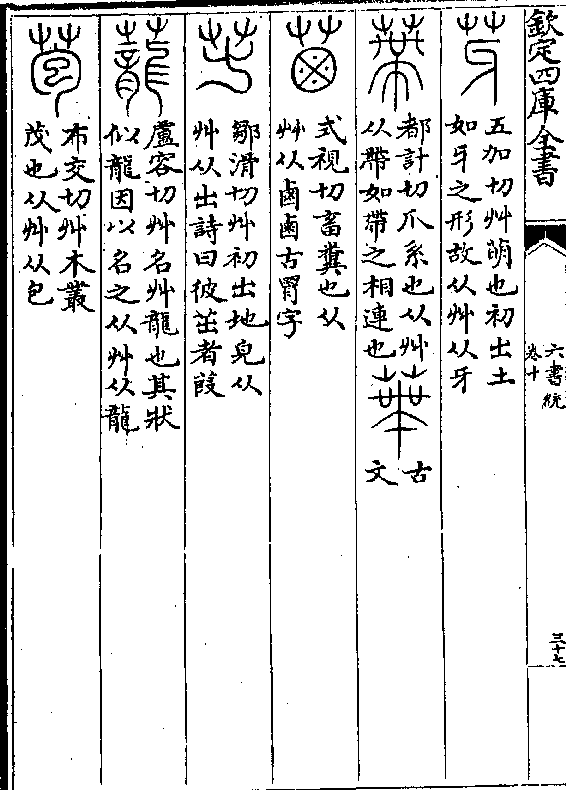 欽定四庫全書
六書統
卷十
三十七
芽
五加切艸萌也初出土
如牙之形故从艸从牙
蔕
都計切爪系也从艸
从帶如帶之相連也
古
文
式視切畜糞也从
艸从鹵鹵古胃字
茁
鄒滑切艸初出地皃从
艸从出詩曰彼茁者葭
蘢
盧容切艸名艸龍也其狀
似龍因以名之从艸从龍
苞
布交切艸木叢
茂也从艸从包